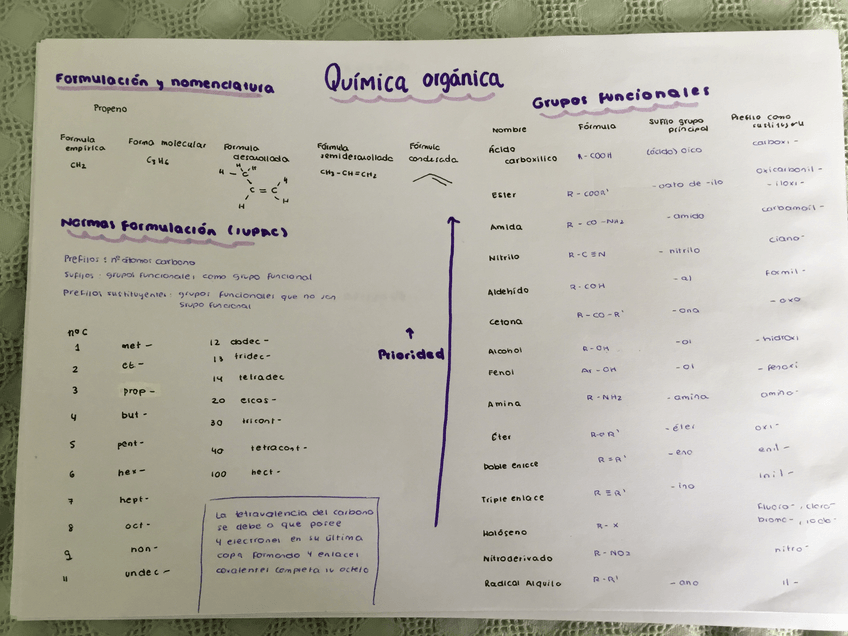 Química orgánica
Formulación y nomenclatura
Propeno
Formula empírica
CH2
Forma molecular
C3H6
Formula desarrollada
H H
H - C
C = C H
H H
Fórmula semidesarrollada
CH3-CH=CH2
Fórmula condensada
Normas Formulación (IUPAC)
Prefijos : nº átomos carbono
Sufijos : grupos funcionales como grupo funcional
Prefijos sustituyentes : grupos funcionales que no son
grupo funcional
nº C
1 met -
2 et -
3 prop -
4 but -
5 pent -
6 hex -
7 hept -
8 oct -
9 non -
11 undec -
12 dodec -
13 tridec -
14 tetradec
20 eicos -
30 tricont -
40 tetracont -
100 hect -
La tetravalencia del carbono
se debe a que posee
4 electrones en su última
capa formando 4 enlaces
covalentes completa su octeto
↑
Prioridad
Grupos Funcionales
Nombre Fórmula Sufijo grupo principal Prefijo como sustituyente
Ácido carboxílico R-COOH (ácido) oico carboxi -
Ester R-COOR' - oato de -ilo oxicarbonil - - iloxi -
Amida R - CO - NH2 - amida carbamoil -
Nitrilo R-C≡N - nitrilo ciano -
Aldehído R-COH - al formil -
Cetona R-CO-R' - ona - oxo
Alcohol R-OH - ol - hidroxi
Fenol Ar-OH - ol - fenoxi
Amina R-NH2 - amina amino -
Éter ROR' - éter oxi -
Doble enlace R=R' - eno enil -
Triple enlace R≡R' - ino inil -
Halógeno R-X Fluoro-, cloro- bromo-, iodo-
Nitroderivado R-NO2 nitro -
Radical Alquilo R-R' - ano il -